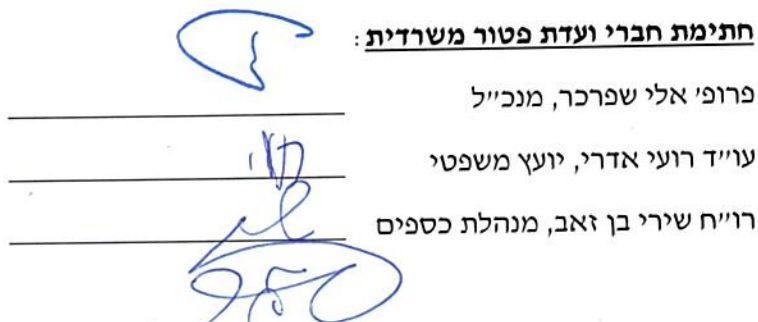 חתימת חברי ועדת פטור משרדית:
פרופ׳ אלי שפרכר, מנכ״ל
עו״ד רועי אדרי, יועץ משפטי
רו״ח שירי בן זאב, מנהלת כספים